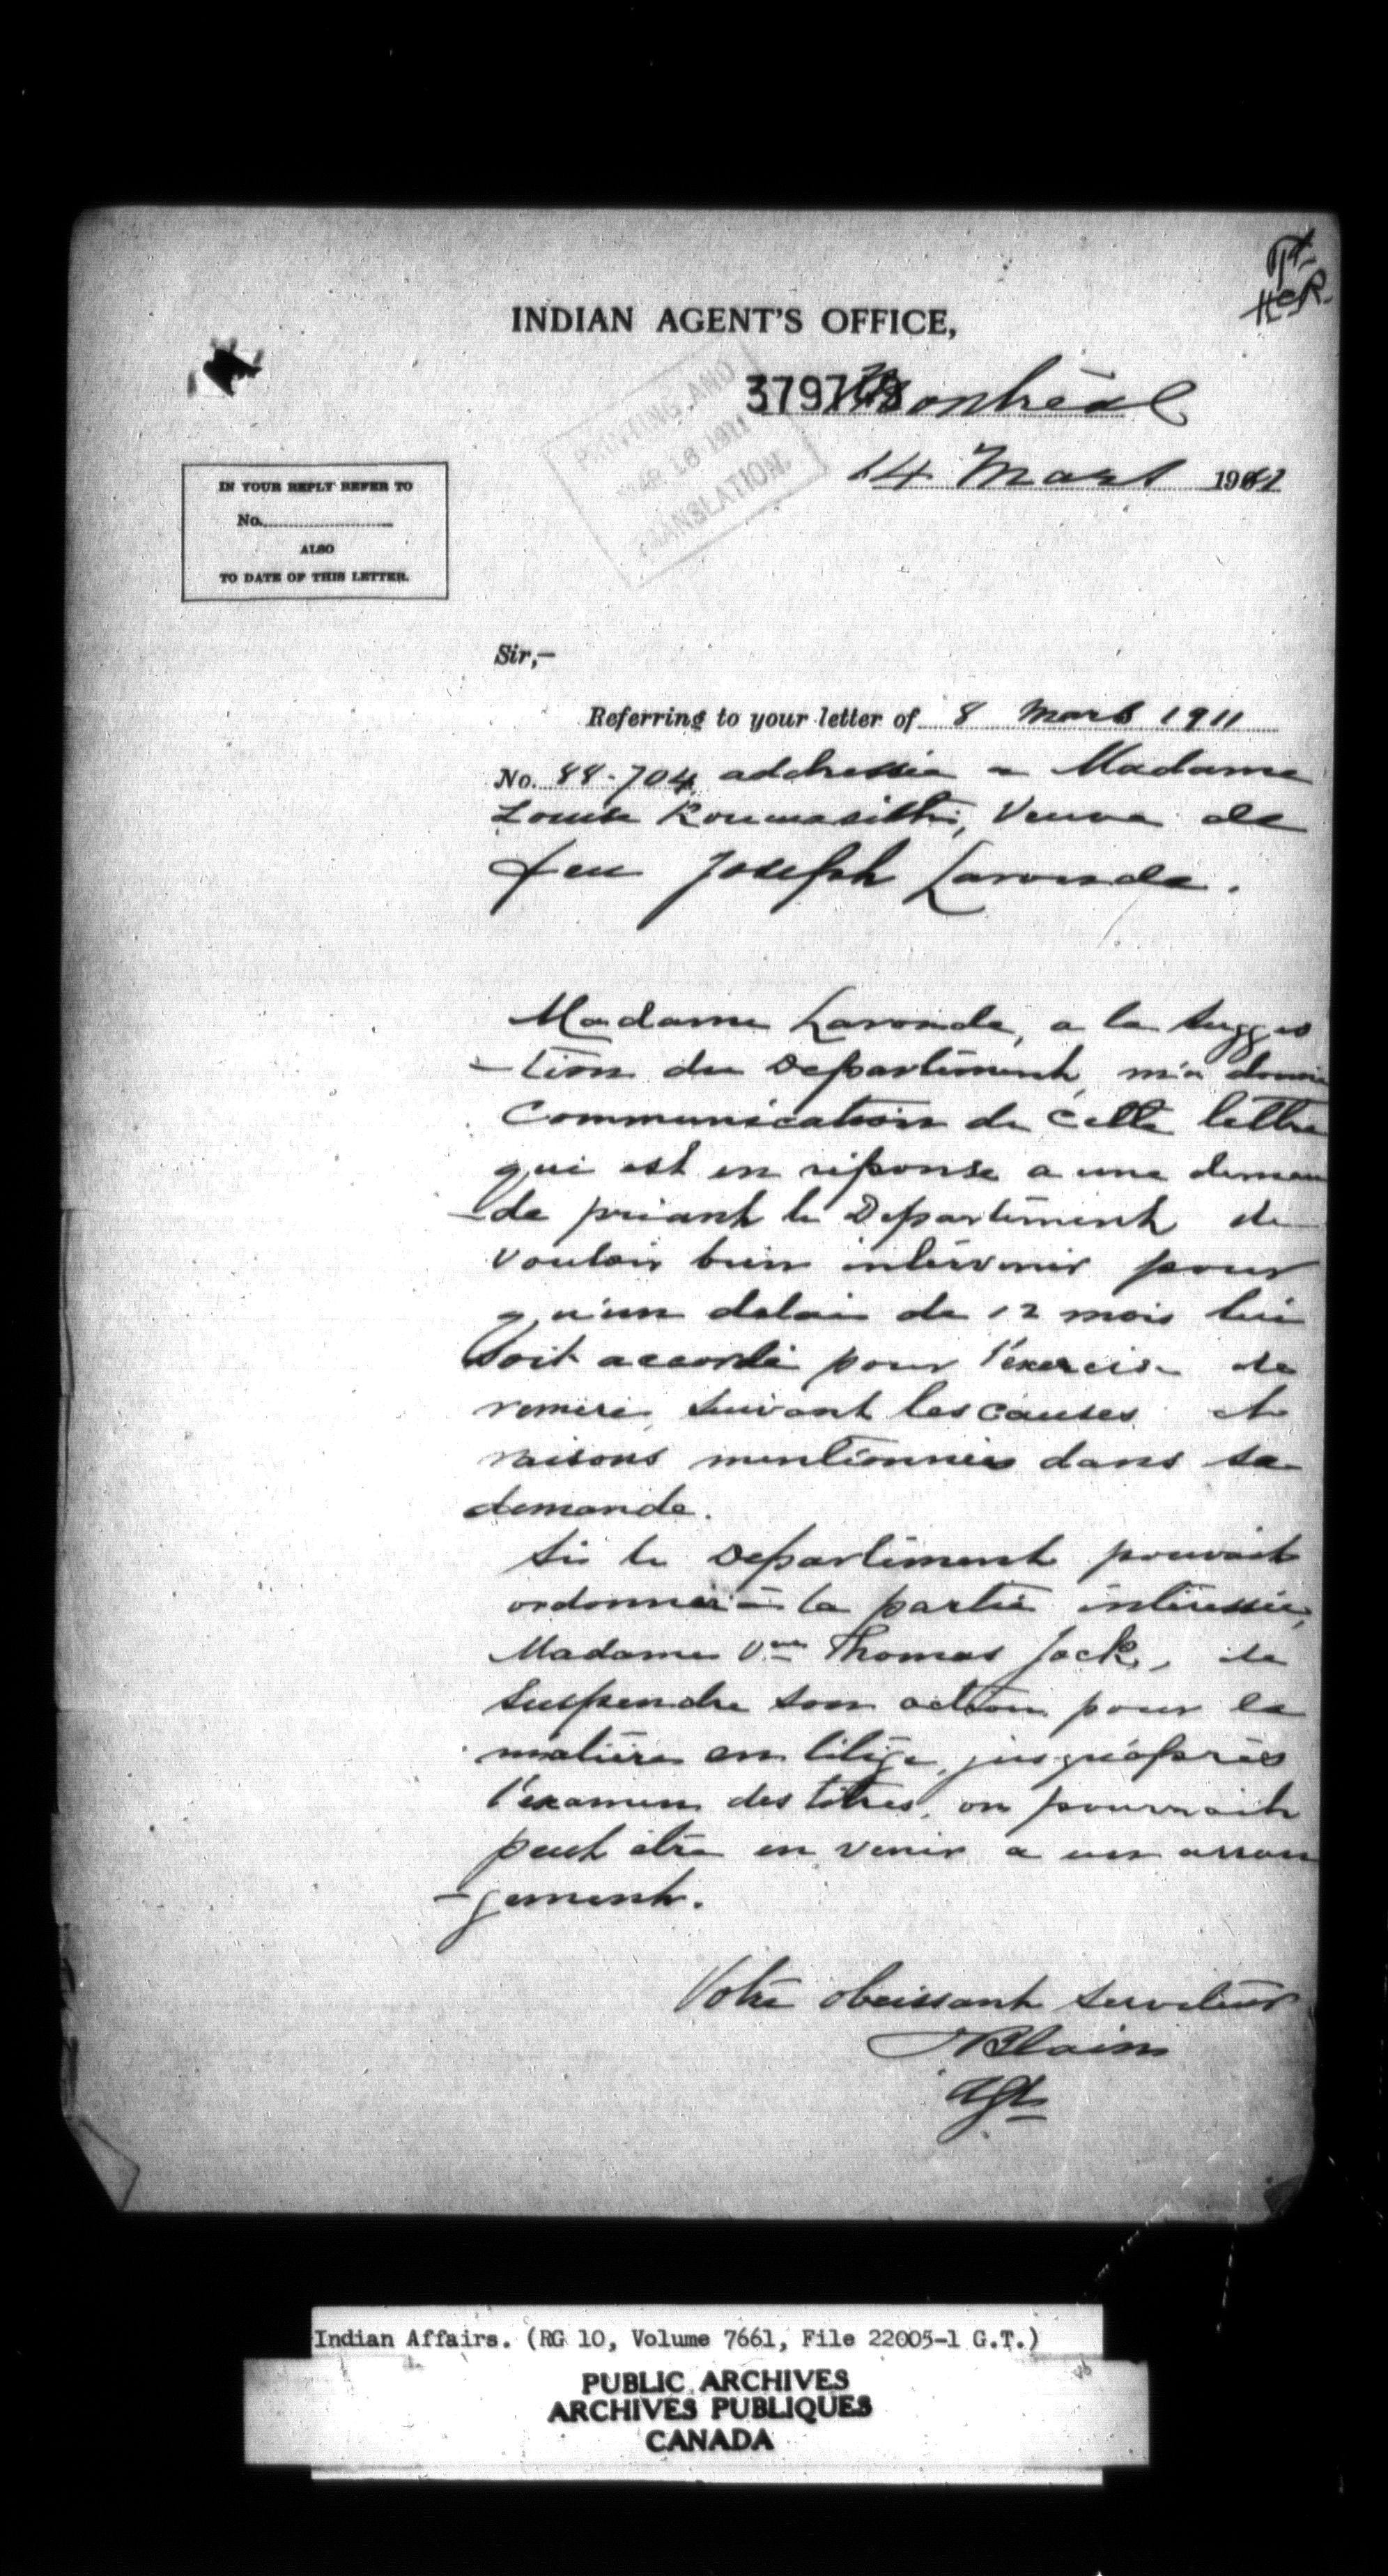 Pt.
HCR.
INDIAN AGENT'S OFFICE,
Montréal
PRINTING AND
MAR 16 1911
TRANSLATION
14 Mars 1911
IN YOUR REPLY REFER TO
No.
ALSO
TO DATE OF THIS LETTER.
Sir,—
Referring to your letter of 8 Mars 1911
No. 88-704, addressée a Madame
Louise Veuve de
feu Joseph Laronde.
Madame Laronde, a la sugges
-tion du Departement, m'a donné
communication de cette lettre
qui est en réponse a une deman
-de priant le Departement de
vouloir bien intervenir pour
qu'un delai de 12 mois lui
soit accordé pour l'exercise de
remeré, suivant les causes et
raisons mentionnées dans sa
demande.
Si le Departement pouvait
ordonner à la partie intéressée,
Madame Vve Thomas Jock, de
suspendre son action pour la
matière en litige, jusqu'après
l'examen des titres, on pourrait
peut être en venir a un arran
-gement.
Votre obeissant serviteur
Blain
Agt
Indian Affairs. (RG 10, Volume 7661, File 22005-1 G.T.)
PUBLIC ARCHIVES
ARCHIVES PUBLIQUES
CANADA